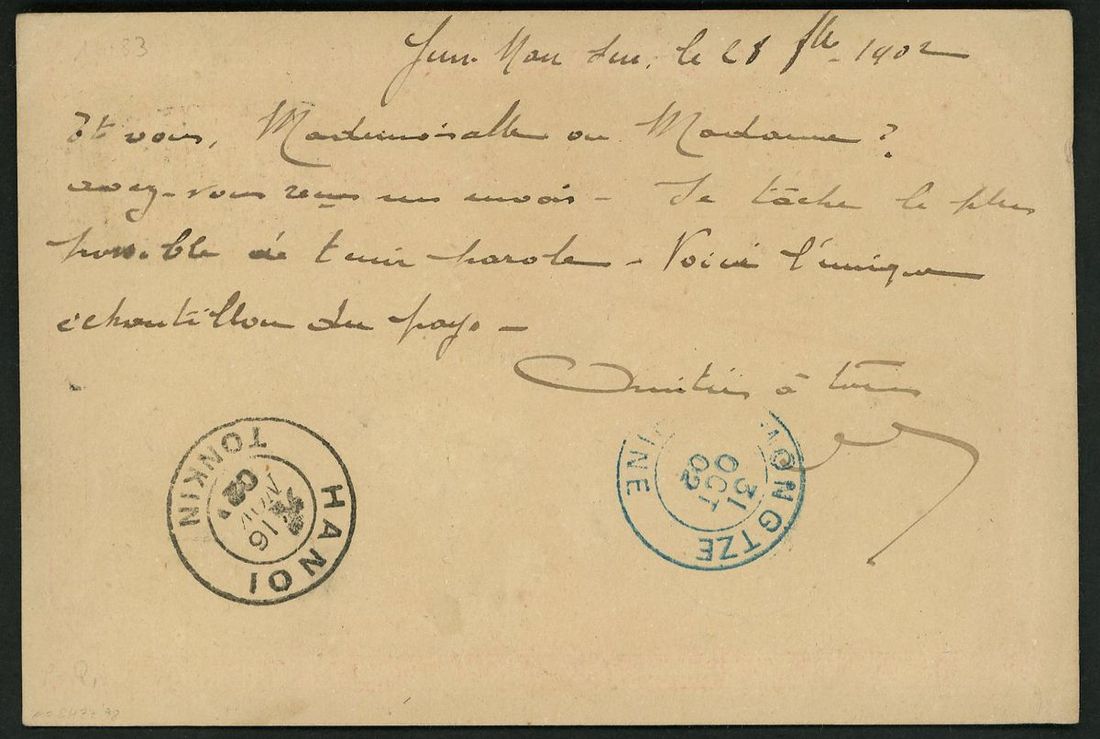 le 28 1902
Et vous, Mademoiselle ou Madame?
avez-vous reçus mes envois - Je tâche le plus
possible de tenir parole - Voici l'unique
échantillon du pays -
Amitiés à tous
HANOI
TONKIN
16
NOV
02
MONGTZE
CHINE
31
OCT
02